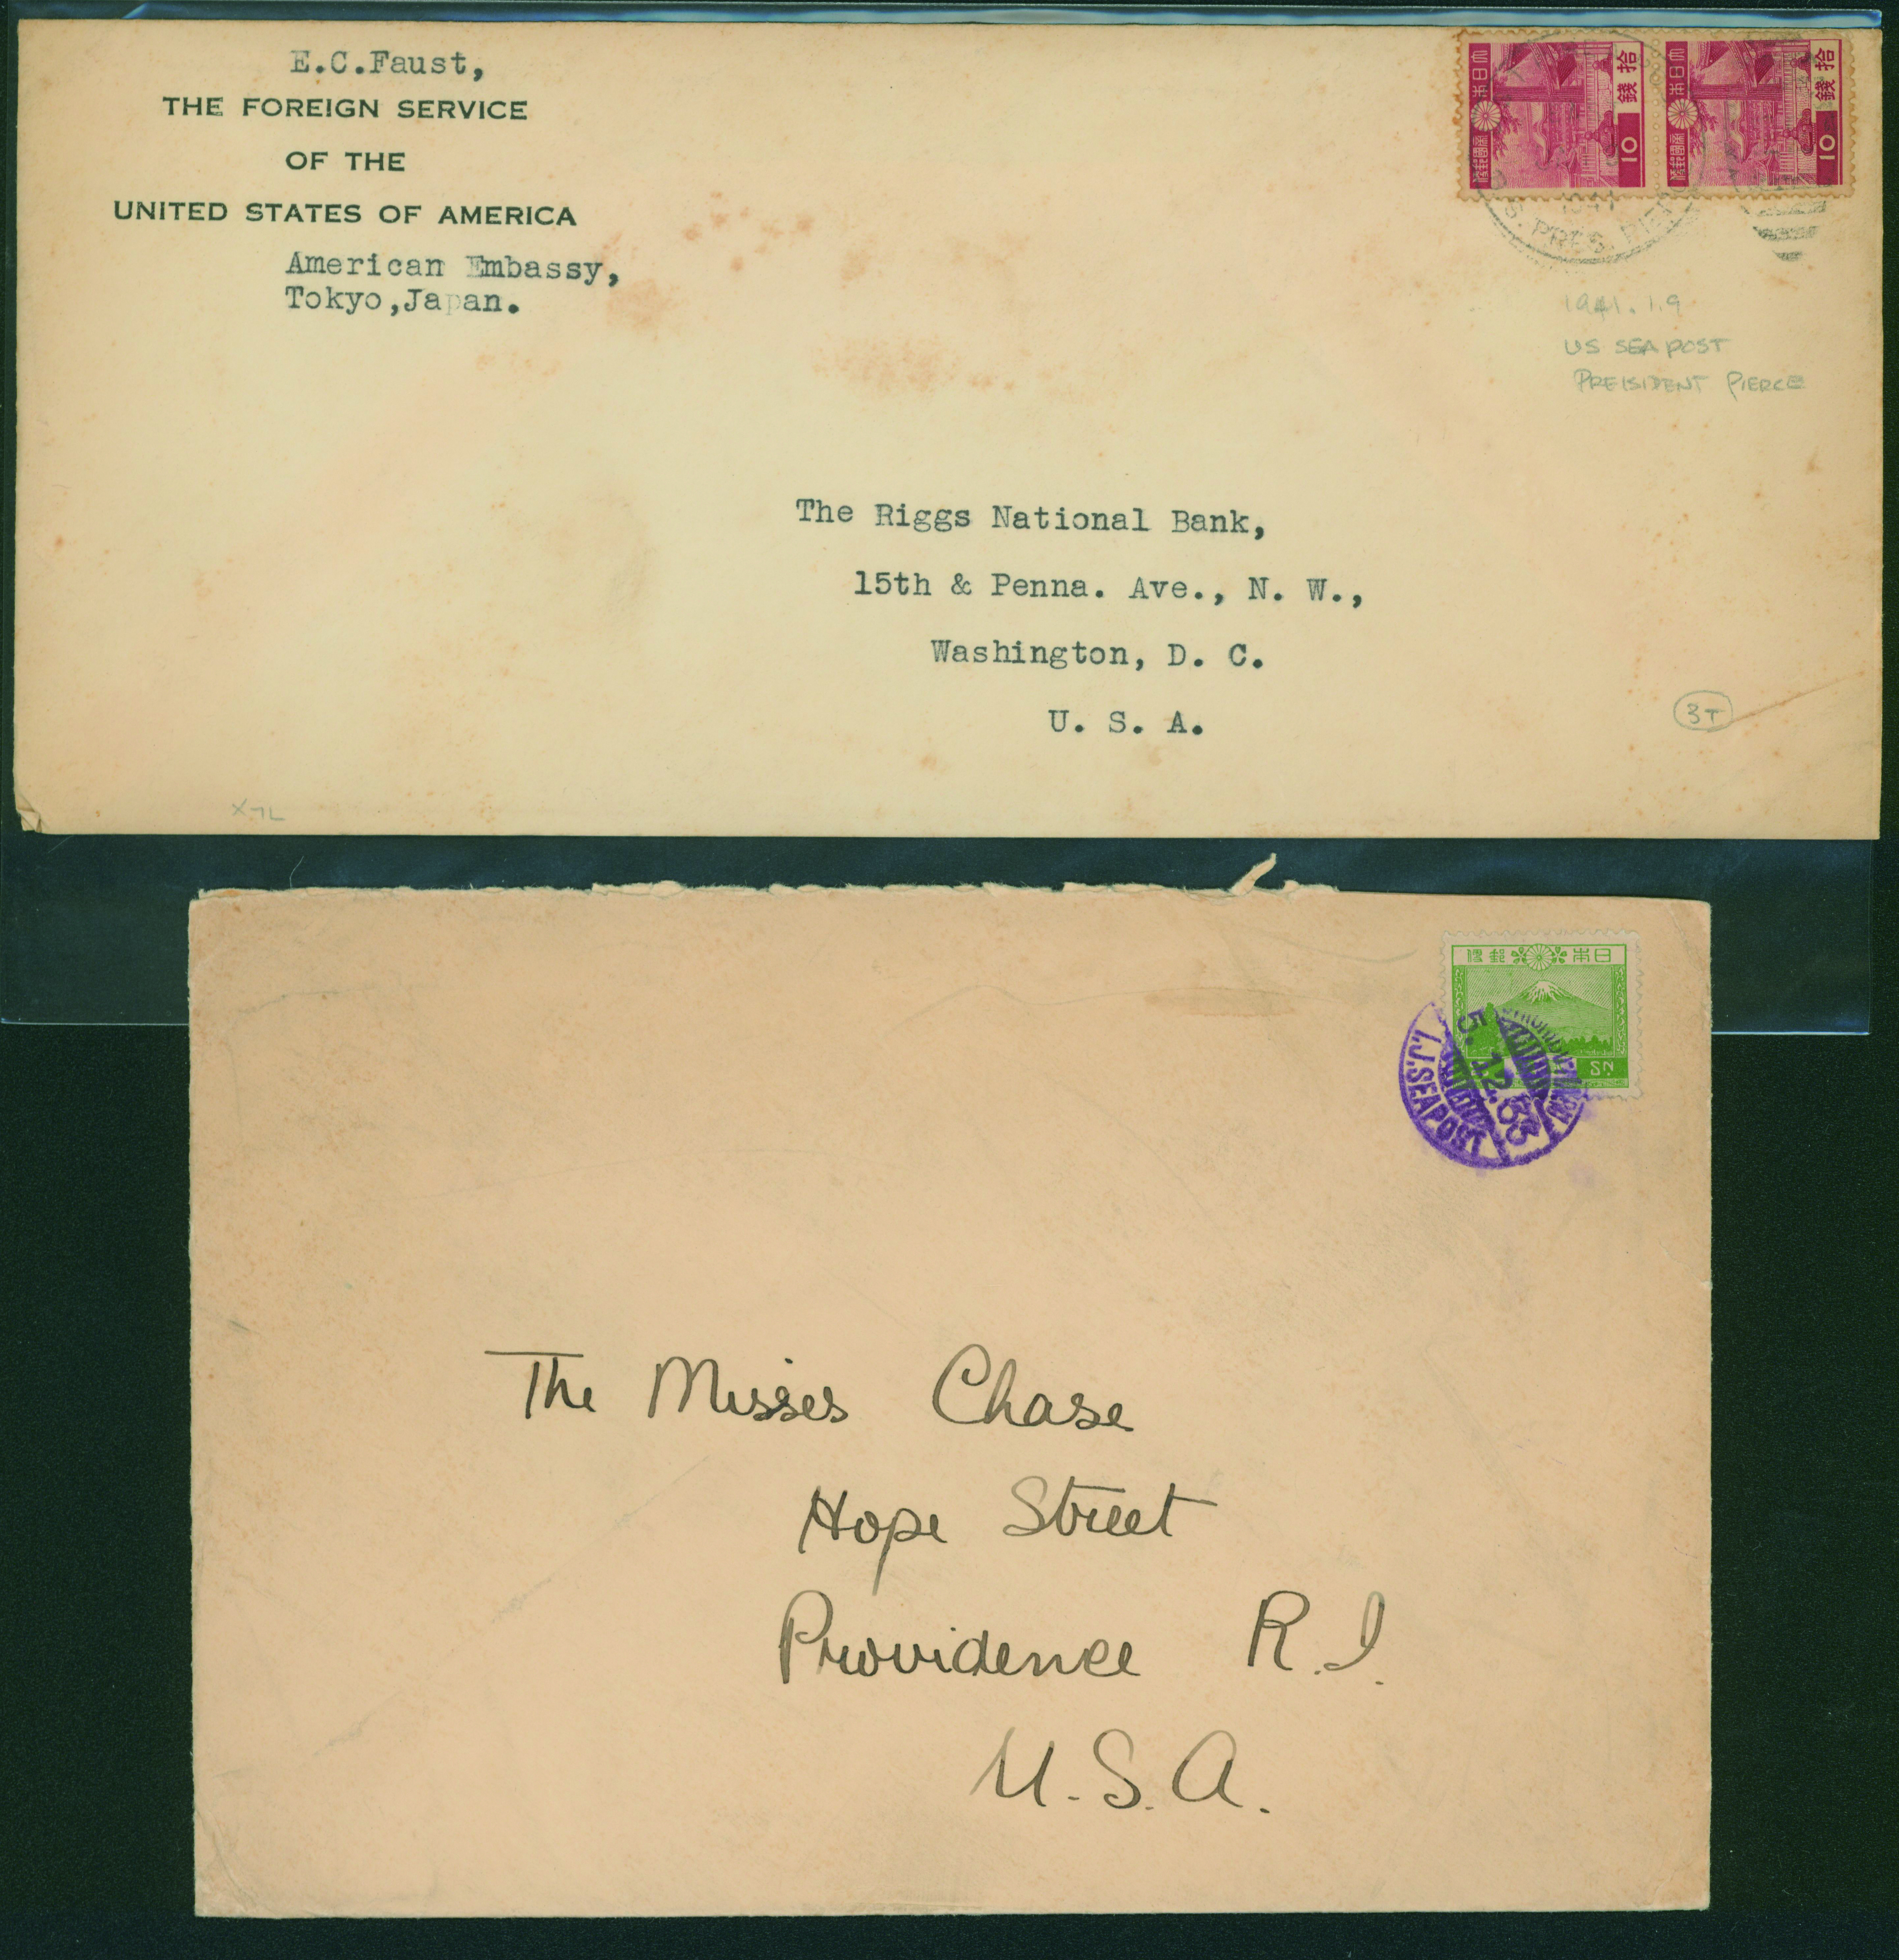 E.C.Faust,
THE FOREIGN SERVICE
OF THE
UNITED STATES OF AMERICA
American Embassy,
Tokyo,Japan.
大日本
拾錢
10
大日本
拾錢
10
S.S. PRES. PIERCE
1941
1941.1.9
US SEA POST
PRESIDENT PIERCE
The Riggs National Bank,
15th & Penna. Ave., N. W.,
Washington, D. C.
U. S. A.
3T
日本郵便
SN
5.12.33
I.J.SEAPOST
The Misses Chase
Hope Street
Providence R.I.
U.S.A.